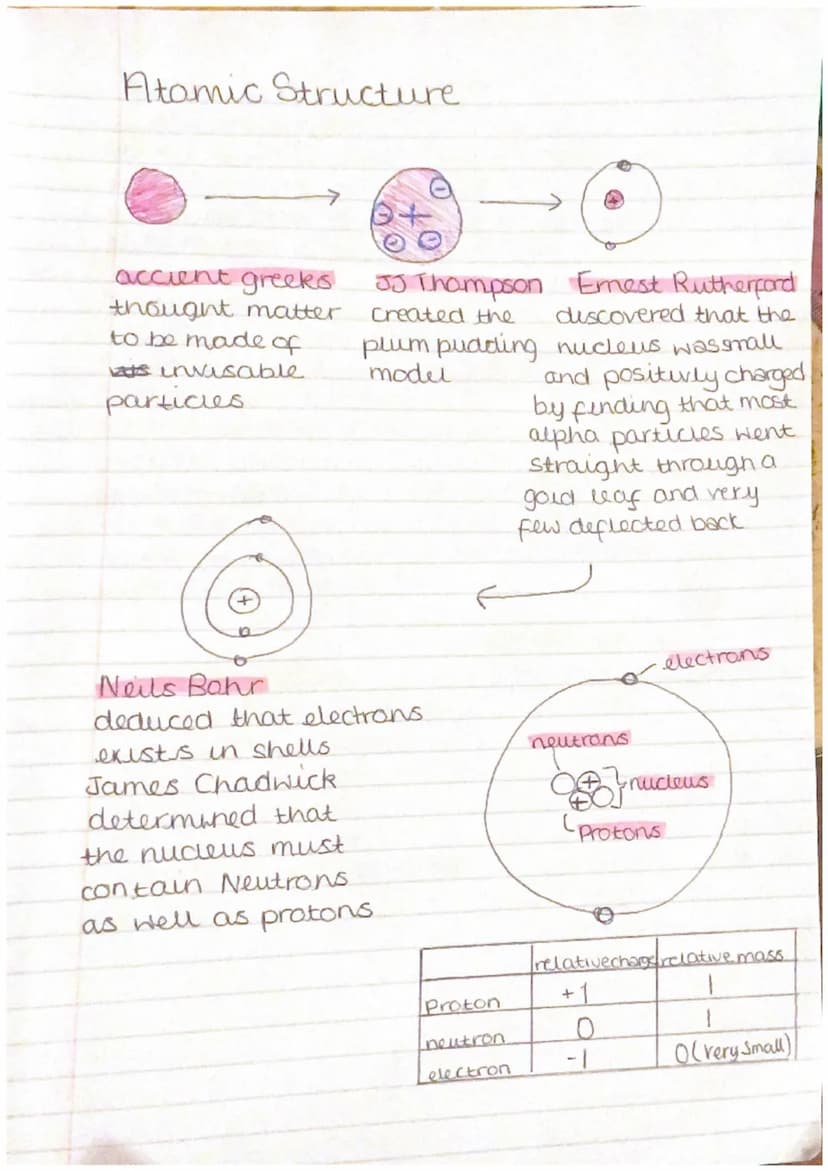 Atomic Structure
accient greeks
thought matter
to be made of
invisable
particles
JJ Thompson
created the
plum pudding
model
Ernest Rutherford
discovered that the
nucleus was small
and positivly charged
by finding that most
alpha particles went
straight through a
gold leaf and very
few deflected back
Neils Bohr
deduced that electrons
exists in shells
James Chadwick
determined that
the nucleus must
contain Neutrons
as well as protons
electrons
neutrons
nucleus
Protons
relative charge relative mass
Proton +1 1
neutron 0 1
electron -1 0 (very small)